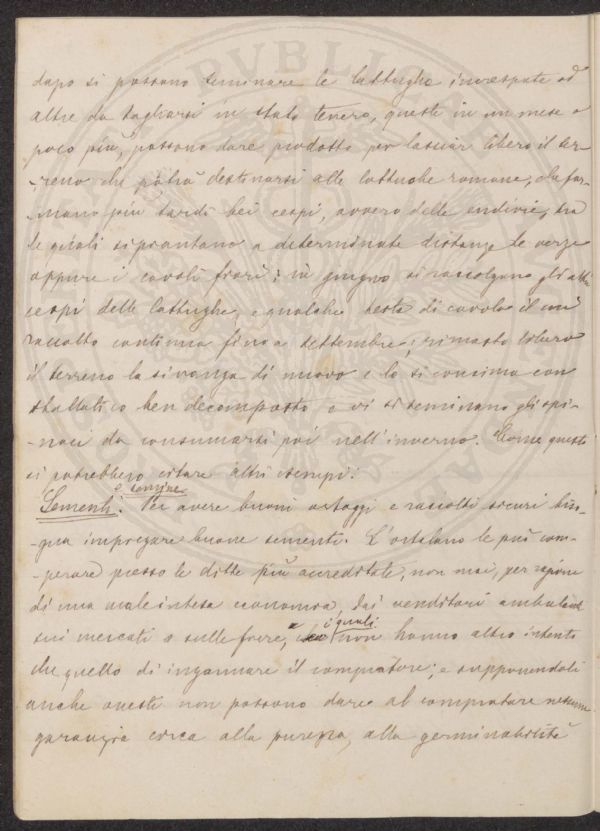 dopo si possono seminare le lattughe increspate ed
altre da tagliarsi in stato tenero, queste in un mese o
poco più, possono dare prodotto per lasciar libero il ter-
-reno che potrà destinarsi alle lattughe romane, che for-
-mano più tardi bei cespi, ovvero delle endivie, tra
le quali si piantano a determinate distanze le verze
oppure i cavoli fiori; in giugno si raccolgono gli altri
cespi delle lattughe, e qualche testa di cavolo il cui
raccolto continua fino a settembre; rimasto libero
il terreno la si vanga di nuovo e lo si concima con
stallatico ben decomposto e vi si seminano gli spi-
-naci da consumarsi poi nell'inverno. Come questi
si potrebbero citare altri esempi.
e semine
Sementi. Per avere buoni ortaggi e raccolti sicuri biso-
gna impiegare buone sementi. L'ortolano le può com-
-perare presso le ditte più accreditate, non mai, per ragione
di una male intesa economia, dai venditori ambulanti
i quali
sui mercati o sulle fiere, non hanno altro intento
che quello di ingannare il compratore; e supponendoli
anche onesti non possono dare al compratore nessuna
garanzia circa alla purezza, alla germinabilità